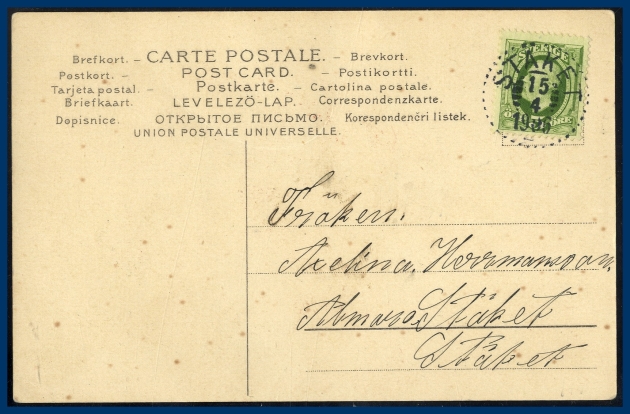 Brefkort. – CARTE POSTALE. – Brevkort.
Postkort. – POST CARD. – Postikortti.
Tarjeta postal. – Postkarte. – Cartolina postale.
Briefkaart. LEVELEZŐ-LAP. Correspondenzkarte.
Dopisnice. ОТКРЫТОЕ ПИСЬМО. Korespondenčri listek.
UNION POSTALE UNIVERSELLE.
SVERIGE
STÄKET
15
4
1906
ÖRE
Fröken.
Axelina. Herrmansson.
Almare, Stäket
Stäket